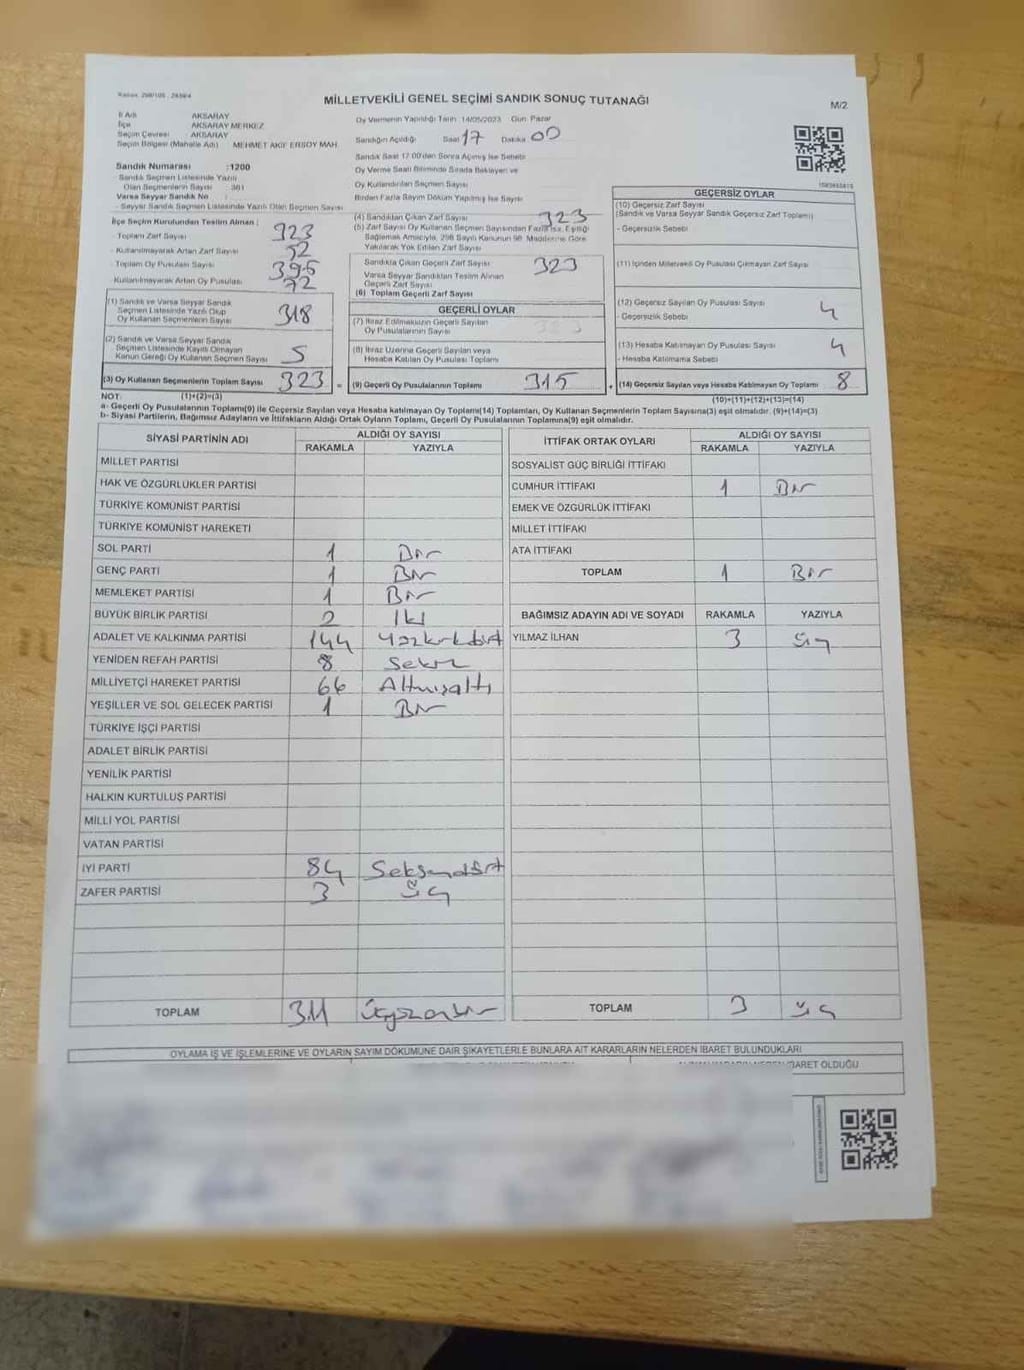 MİLLETVEKİLİ GENEL SEÇİMİ SANDIK SONUÇ TUTANAĞI
M/2
İl Adı AKSARAY
İlçe AKSARAY MERKEZ
Seçim Çevresi AKSARAY
Seçim Bölgesi (Mahalle Adı) MEHMET AKİF ERSOY MAH.
Sandık Numarası :1200
Sandık Seçmen Listesinde Yazılı
Olan Seçmenlerin Sayısı : 361
Varsa Seyyar Sandık No :
- Seyyar Sandık Seçmen Listesinde Yazılı Olan Seçmen Sayısı
Oy Vermenin Yapıldığı Tarih 14/05/2023 Gün Pazar
Sandığın Açıldığı Saat 17 Dakika 00
Sandık Saat 17:00'den Sonra Açılmış İse Sebebi
Oy Verme Saati Bitiminde Sırada Bekleyen ve
Oy Kullandırılan Seçmen Sayısı
Birden Fazla Sayım Döküm Yapılmış İse Sayısı
İlçe Seçim Kurulundan Teslim Alınan :
- Toplam Zarf Sayısı
- Kullanılmayarak Artan Zarf Sayısı 52
- Toplam Oy Pusulası Sayısı 395
- Kullanılmayarak Artan Oy Pusulası 72
(1) Sandık ve Varsa Seyyar Sandık
Seçmen Listesinde Yazılı Olup
Oy Kullanan Seçmenlerin Sayısı 318
(2) Sandık ve Varsa Seyyar Sandık
Seçmen Listesinde Kayıtlı Olmayan
Kanun Gereği Oy Kullanan Seçmen Sayısı 5
(3) Oy Kullanan Seçmenlerin Toplam Sayısı 323 =
(4) Sandıktan Çıkan Zarf Sayısı 323
(5) Zarf Sayısı Oy Kullanan Seçmen Sayısından Fazla ise, Eşitliği
Sağlamak Amacıyla, 298 Sayılı Kanunun 98. Maddesine Göre
Yakılarak Yok Edilen Zarf Sayısı
Sandıkta Çıkan Geçerli Zarf Sayısı 323
Varsa Seyyar Sandıktan Teslim Alınan
Geçerli Zarf Sayısı
(6) Toplam Geçerli Zarf Sayısı
GEÇERLİ OYLAR
(7) İtiraz Edilmeksizin Geçerli Sayılan
Oy Pusulalarının Sayısı
(8) İtiraz Üzerine Geçerli Sayılan veya
Hesaba Katılan Oy Pusulası Toplamı
(9) Geçerli Oy Pusulalarının Toplamı 315 +
GEÇERSİZ OYLAR
(10) Geçersiz Zarf Sayısı
(Sandık ve Varsa Seyyar Sandık Geçersiz Zarf Toplamı)
- Geçersizlik Sebebi
(11) İçinden Milletvekili Oy Pusulası Çıkmayan Zarf Sayısı
(12) Geçersiz Sayılan Oy Pusulası Sayısı 4
- Geçersizlik Sebebi
(13) Hesaba Katılmayan Oy Pusulası Sayısı 4
- Hesaba Katılmama Sebebi
(14) Geçersiz Sayılan veya Hesaba Katılmayan Oy Toplamı 8
NOT: (1)+(2)=(3) (10)+(11)+(12)+(13)=(14)
a- Geçerli Oy Pusulalarının Toplamı(9) ile Geçersiz Sayılan veya Hesaba katılmayan Oy Toplamı(14) Toplamları, Oy Kullanan Seçmenlerin Toplam Sayısına(3) eşit olmalıdır. (9)+(14)=(3)
b- Siyasi Partilerin, Bağımsız Adayların ve İttifakların Aldığı Ortak Oyların Toplamı, Geçerli Oy Pusulalarının Toplamına(9) eşit olmalıdır.
SİYASİ PARTİNİN ADI ALDIĞI OY SAYISI
RAKAMLA YAZIYLA
MİLLET PARTİSİ
HAK VE ÖZGÜRLÜKLER PARTİSİ
TÜRKİYE KOMÜNİST PARTİSİ
TÜRKİYE KOMÜNİST HAREKETİ
SOL PARTİ 1 Bir
GENÇ PARTİ 1 Bir
MEMLEKET PARTİSİ 1 Bir
BÜYÜK BİRLİK PARTİSİ 2 İki
ADALET VE KALKINMA PARTİSİ 144 Yüzkırkdört
YENİDEN REFAH PARTİSİ 8 Sekiz
MİLLİYETÇİ HAREKET PARTİSİ 66 Altmışaltı
YEŞİLLER VE SOL GELECEK PARTİSİ 1 Bir
TÜRKİYE İŞÇİ PARTİSİ
ADALET BİRLİK PARTİSİ
YENİLİK PARTİSİ
HALKIN KURTULUŞ PARTİSİ
MİLLİ YOL PARTİSİ
VATAN PARTİSİ
İYİ PARTİ 84 Seksendört
ZAFER PARTİSİ 3 Üç
TOPLAM 311 Üçyüzonbir
İTTİFAK ORTAK OYLARI ALDIĞI OY SAYISI
RAKAMLA YAZIYLA
SOSYALİST GÜÇ BİRLİĞİ İTTİFAKI
CUMHUR İTTİFAKI 1 Bir
EMEK VE ÖZGÜRLÜK İTTİFAKI
MİLLET İTTİFAKI
ATA İTTİFAKI
TOPLAM 1 Bir
BAĞIMSIZ ADAYIN ADI VE SOYADI RAKAMLA YAZIYLA
YILMAZ İLHAN 3 Üç
TOPLAM 3 Üç
OYLAMA İŞ VE İŞLEMLERİNE VE OYLARIN SAYIM DÖKÜMÜNE DAİR ŞİKAYETLERLE BUNLARA AİT KARARLARIN NELERDEN İBARET BULUNDUKLARI
İBARET OLDUĞU